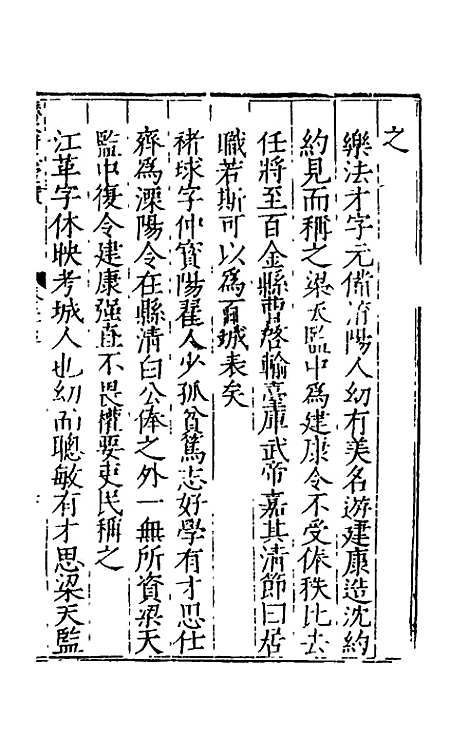 之
樂法才字元俻淯陽人幼有美名遊建康造沈約
約見而稱之梁天監中爲建康令不受俸秩比去
任將至百金縣曹啓輸臺庫武帝嘉其清節曰居
職若斯可以爲百城表矣
褚球字仲寳陽翟人少孤貧篤志好學有才思仕
齊爲溧陽令在縣清白公俸之外一無所資梁天
監中復令建康强直不畏權要吏民稱之
江革字休映考城人也幼而聰敏有才思梁天監